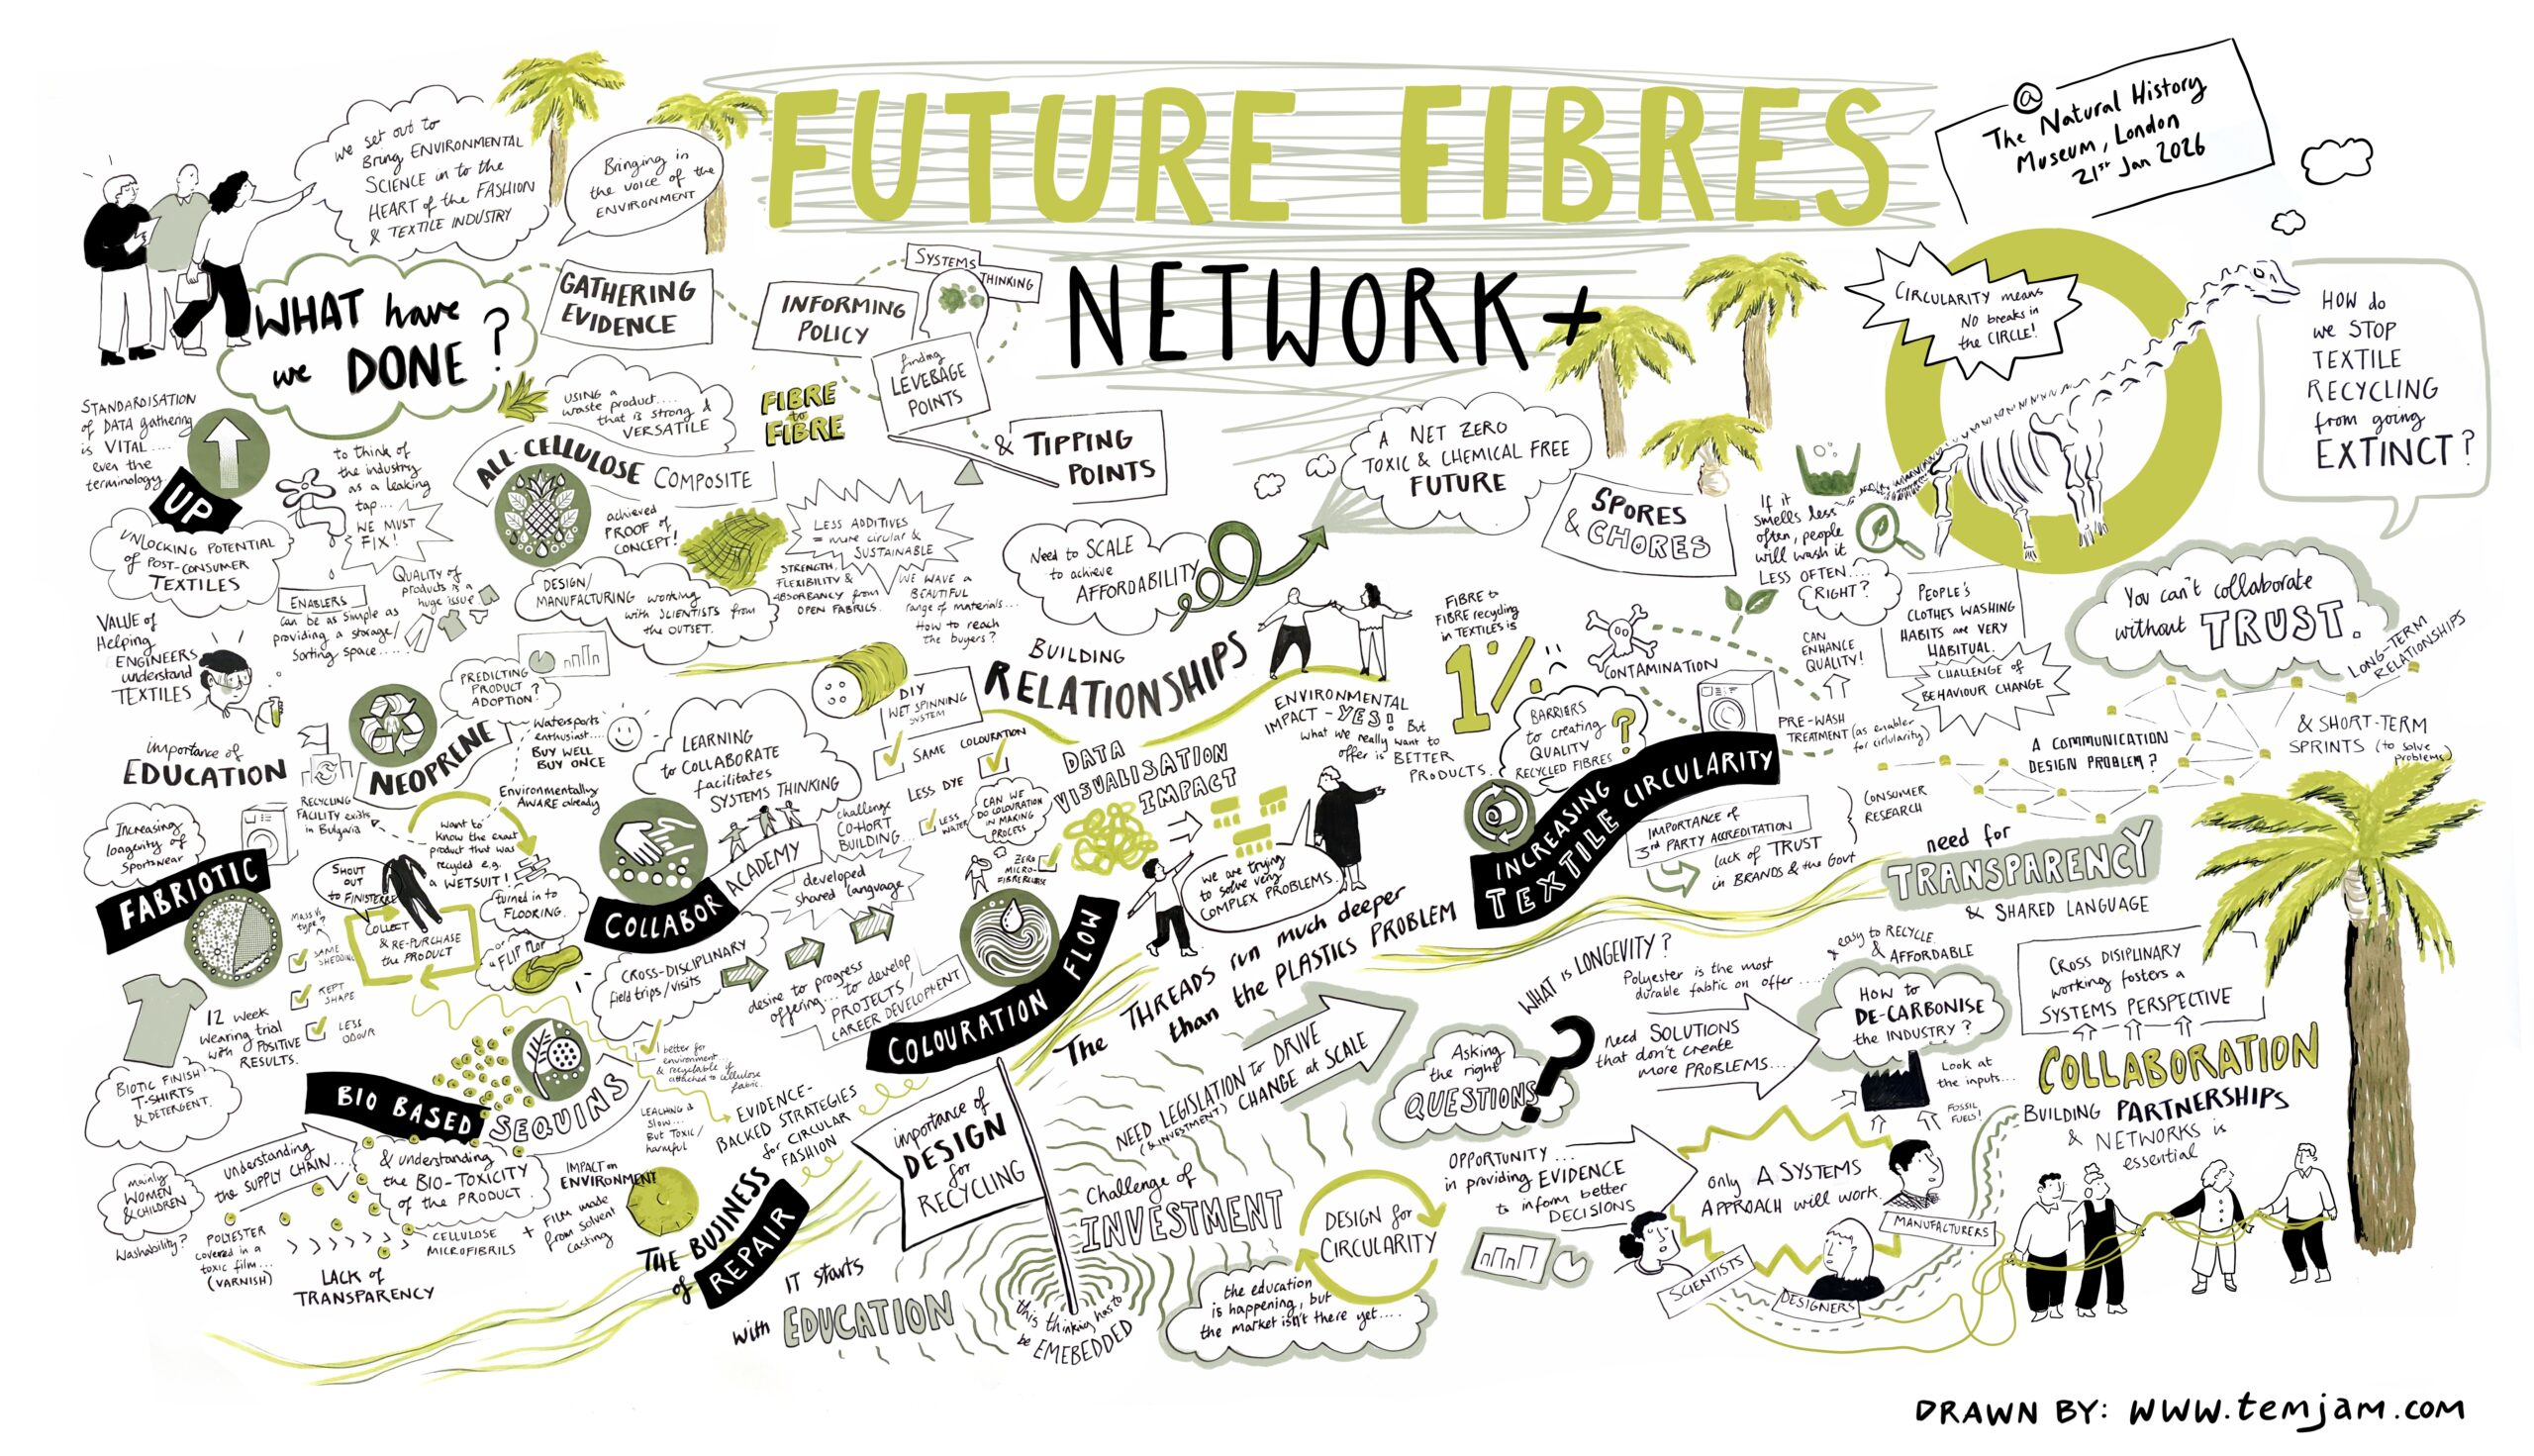 FUTURE FIBRES
NETWORK+
@
The Natural History
Museum, London
21st Jan 2026
we set out to
Bring ENVIRONMENTAL
SCIENCE in to the
HEART of the FASHION
& TEXTILE INDUSTRY
Bringing in
the voice of the
ENVIRONMENT
WHAT have
we DONE?
GATHERING
EVIDENCE
INFORMING
POLICY
SYSTEMS
THINKING
finding
LEVERAGE
POINTS
& TIPPING
POINTS
FIBRE
to
FIBRE
CIRCULARITY means
NO breaks in
the CIRCLE!
HOW do
we STOP
TEXTILE
RECYCLING
from going
EXTINCT?
STANDARDISATION
of DATA gathering
is VITAL....
even the
terminology
UP
UNLOCKING POTENTIAL
of POST-CONSUMER
TEXTILES
to think of
the industry
as a leaking
tap...
WE MUST
FIX!
ENABLERS
can be as simple as
providing a storage/
sorting space....
QUALITY of
products is a
huge issue
VALUE of
Helping
ENGINEERS
understand
TEXTILES
importance of
EDUCATION
USING a
waste product....
that is strong &
VERSATILE
ALL-CELLULOSE COMPOSITE
achieved
PROOF of
CONCEPT!
LESS ADDITIVES
= more circular &
SUSTAINABLE
STRENGTH,
FLEXIBILITY &
ABSORBANCY from
OPEN FABRICS.
DESIGN/
MANUFACTURING working
with SCIENTISTS from
the OUTSET.
WE WAVE a
BEAUTIFUL
range of materials...
How to reach
the buyers?
Need to SCALE
to achieve
AFFORDABILITY
A NET ZERO
TOXIC & CHEMICAL FREE
FUTURE
SPORES
& CHORES
If it
smells less
often, people
will wash it
LESS OFTEN....
(RIGHT?
PEOPLE'S
CLOTHES WASHING
HABITS are VERY
HABITUAL.
CHALLENGE of
BEHAVIOUR CHANGE
CAN
ENHANCE
QUALITY!
PRE-WASH
TREATMENT (as enabler
for circularity)
You can't collaborate
without TRUST.
LONG-TERM
RELATIONSHIPS
& SHORT-TERM
SPRINTS (to solve
problems)
A COMMUNICATION
DESIGN PROBLEM?
PREDICTING
PRODUCT
ADOPTION?
NEOPRENE
Watersports
enthusiast....
BUY WELL
BUY ONCE
Environmentally
AWARE already
RECYCLING
FACILITY exists
in Bulgaria
want to
know the exact
product that was
recycled e.g.
a WETSUIT!
SHOUT
OUT
to FINISTERRE
COLLECT
& RE-PURCHASE
the PRODUCT
turned in to
FLOORING.
or a
FLIP FLOP
Increasing
longevity of
Sportswear
FABRIOTIC
SAME
SHEDDING
KEPT
SHAPE
LESS
ODOUR
12 week
wearing trial
with POSITIVE
RESULTS.
BIOTIC FINISH
T-SHIRTS
& DETERGENT.
LEARNING
to COLLABORATE
facilitates
SYSTEMS THINKING
COLLABOR ACADEMY
challenge
CO-HORT
BUILDING...
developed
shared language
CROSS-DISCIPLINARY
field trips/visits
desire to progress
offering... to develop
PROJECTS/
CAREER DEVELOPMENT
DIY
WET SPINNING
SYSTEM
SAME COLOURATION
LESS DYE
LESS
WATER
CAN WE
DO COLOURATION
IN MAKING
PROCESS
ZERO
MICRO-
FIBRE RELEASE
COLOURATION FLOW
BUILDING
RELATIONSHIPS
DATA
VISUALISATION
IMPACT
ENVIRONMENTAL
IMPACT - YES! But
what we really want to
offer is BETTER
PRODUCTS.
we are trying
to solve very
COMPLEX PROBLEMS.
The THREADS run much deeper
than the PLASTICS PROBLEM
FIBRE to
FIBRE recycling
in TEXTILES is
1%
CONTAMINATION
BARRIERS
to creating
QUALITY
RECYCLED FIBRES
?
INCREASING
TEXTILE CIRCULARITY
IMPORTANCE of
3rd PARTY ACCREDITATION
lack of TRUST
in BRANDS & the Govt
CONSUMER
RESEARCH
need for
TRANSPARENCY
& SHARED LANGUAGE
BIO BASED SEQUINS
better for
environment...
& recyclable if
attached to cellulose
fabric.
LEACHING is
slow...
But TOXIC/
harmful
EVIDENCE-
BACKED STRATEGIES
for CIRCULAR
FASHION
mainly
WOMEN
& CHILDREN
understanding
the SUPPLY CHAIN...
& understanding
the BIO-TOXICITY
of the PRODUCT.
IMPACT on
ENVIRONMENT
Washability?
POLYESTER
covered in a
toxic film...
(VARNISH)
CELLULOSE
MICROFIBRILS
+
FILM made
from solvent
casting
LACK of
TRANSPARENCY
THE BUSINESS
of REPAIR
IT starts
with EDUCATION
importance of
DESIGN
for
RECYCLING
this thinking has to
be EMEBEDDED
NEED LEGISLATION to DRIVE
(& INVESTMENT) CHANGE at SCALE
Challenge of
INVESTMENT
DESIGN for
CIRCULARITY
the education
is happening, but
the market isn't there yet....
Asking
the right
QUESTIONS?
WHAT is LONGEVITY?
Polyester is the most
durable fabric on offer....
& easy to RECYCLE
& AFFORDABLE
need SOLUTIONS
that don't create
more PROBLEMS....
HOW to
DE-CARBONISE
the INDUSTRY?
Look at
the inputs...
FOSSIL
FUELS!
OPPORTUNITY...
in providing EVIDENCE
to inform better
DECISIONS
only A SYSTEMS
APPROACH will work.
SCIENTISTS
DESIGNERS
MANUFACTURERS
CROSS DISIPLINARY
working fosters a
SYSTEMS PERSPECTIVE
COLLABORATION
BUILDING PARTNERSHIPS
& NETWORKS is
essential
DRAWN BY: www.temjam.com